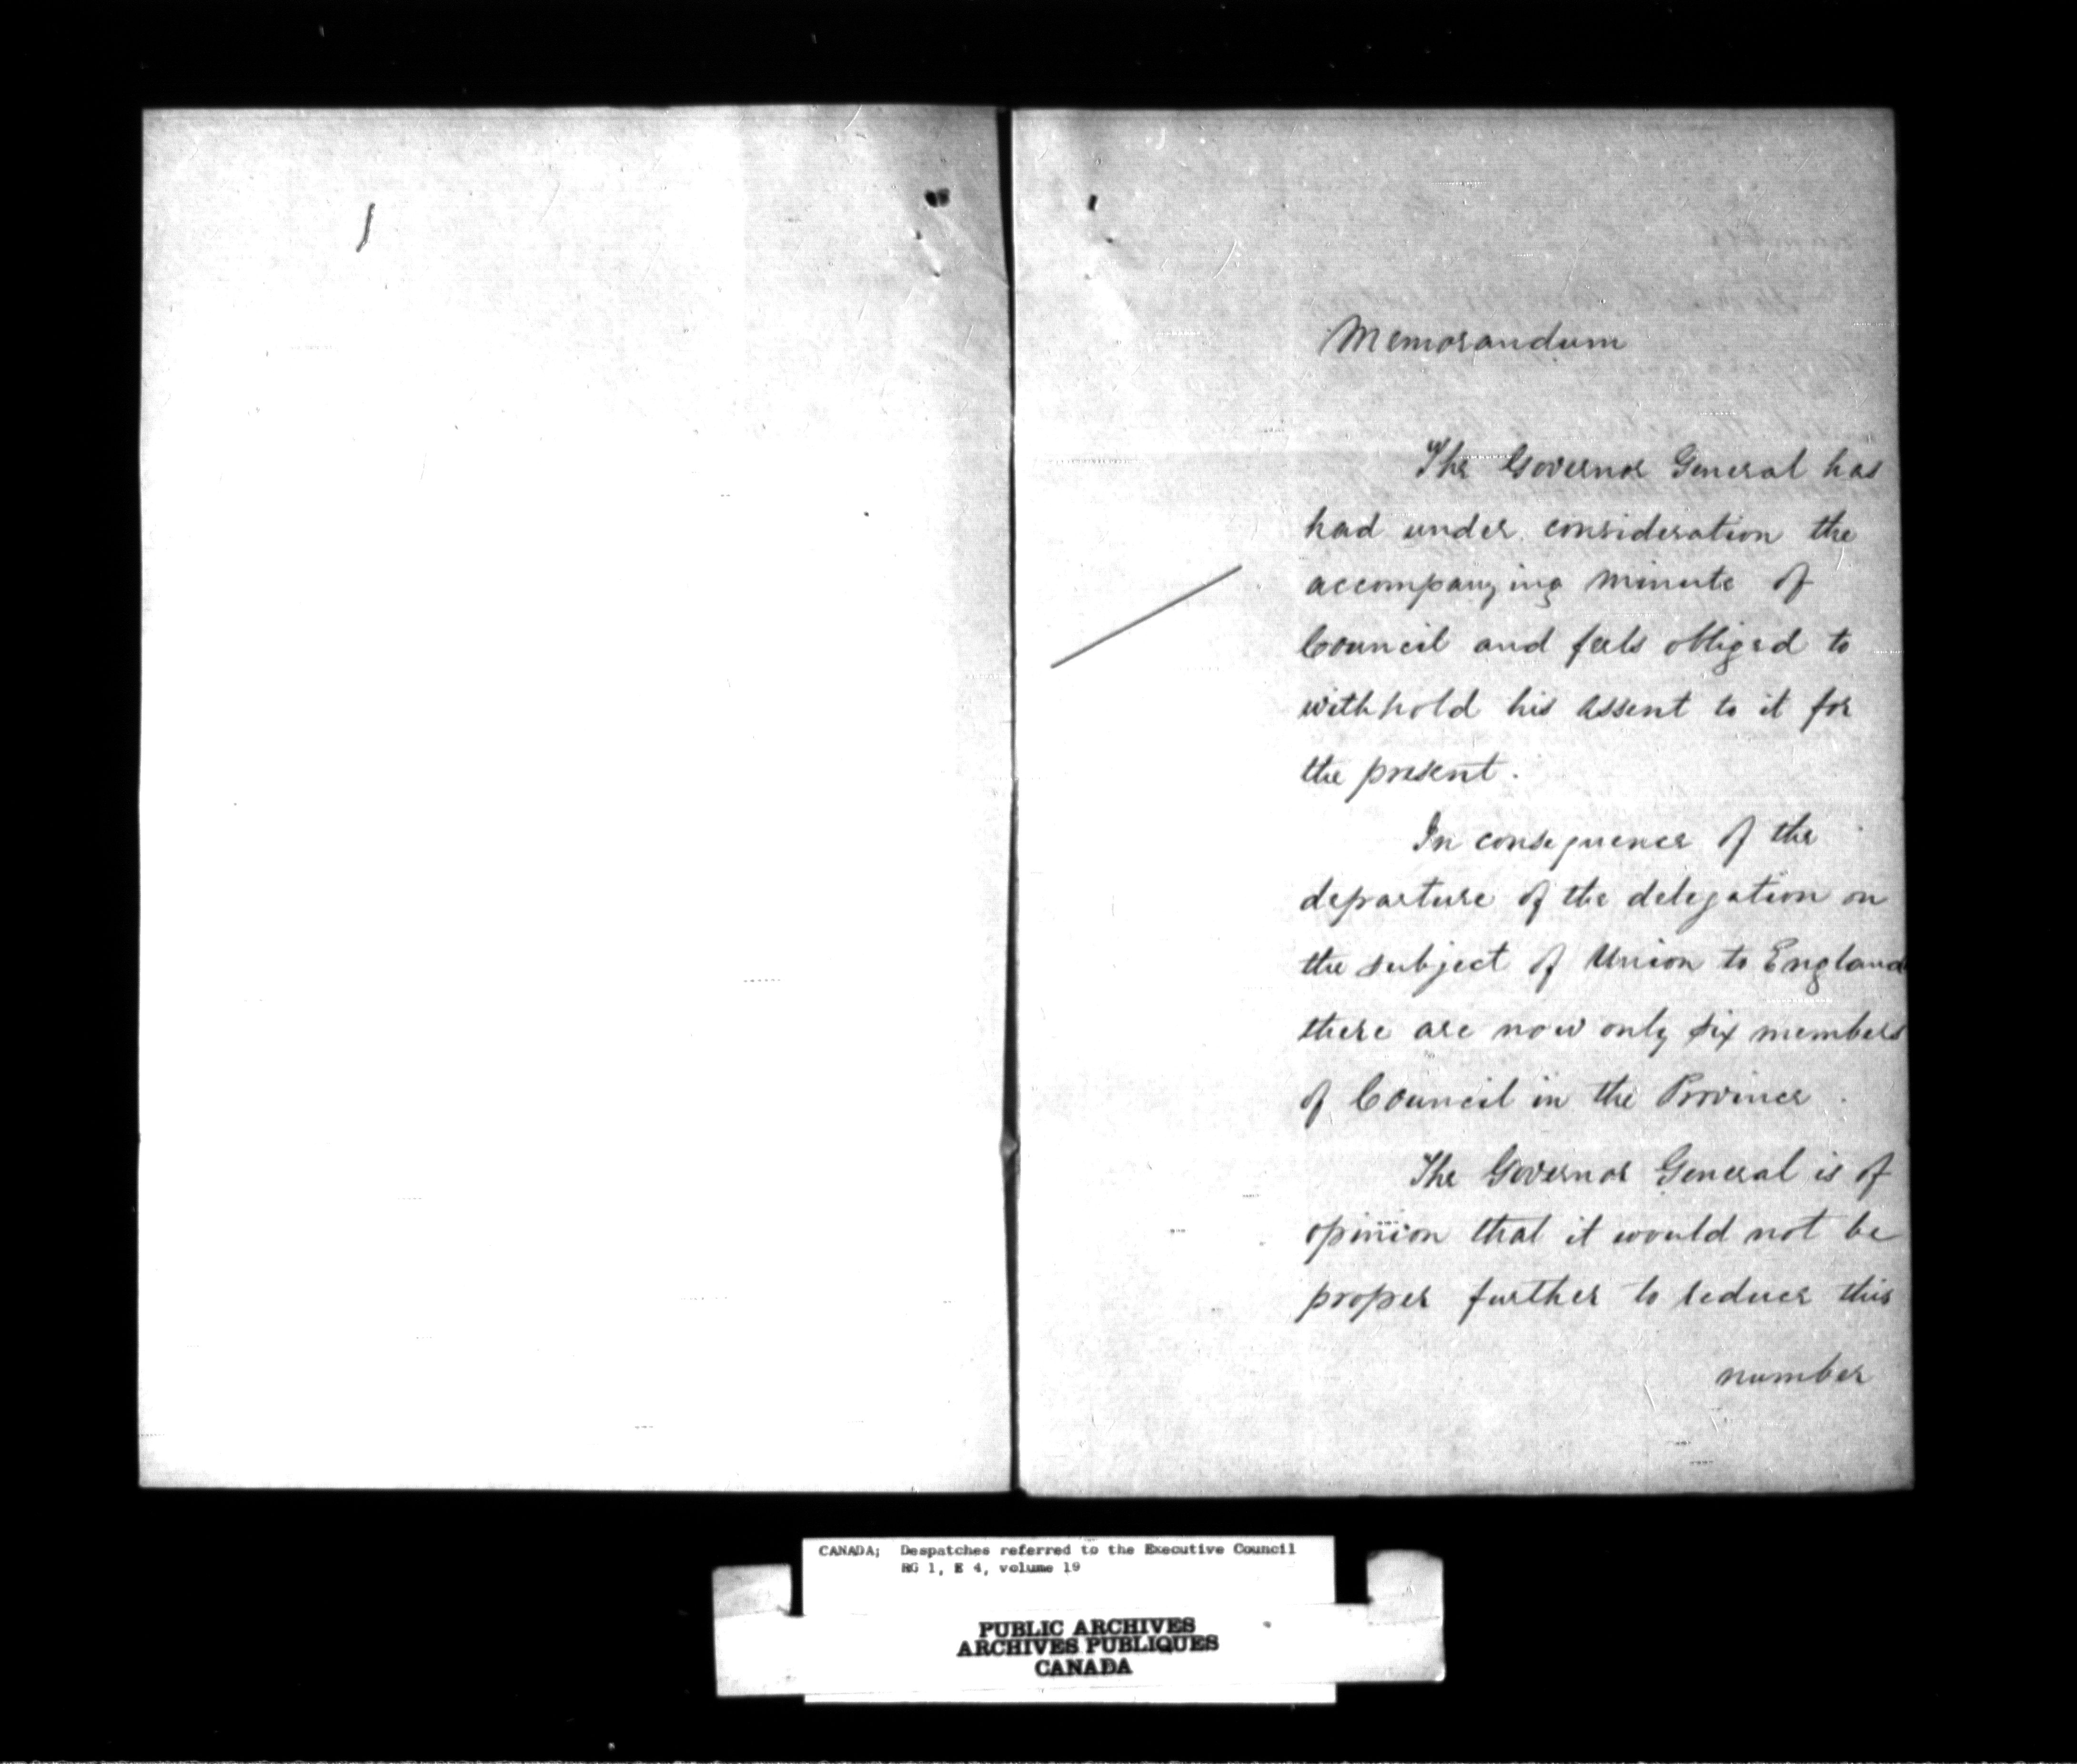 Memorandum
The Governor General has
had under consideration the
accompanying minute of
Council and feels obliged to
withhold his assent to it for
the present.
In consequence of the
departure of the delegation on
the subject of Union to England
there are now only six members
of Council in the Province.
The Governor General is of
opinion that it would not be
proper further to reduce this
number
CANADA; Despatches referred to the Executive Council
RG 1, E 4, volume 19
PUBLIC ARCHIVES
ARCHIVES PUBLIQUES
CANADA